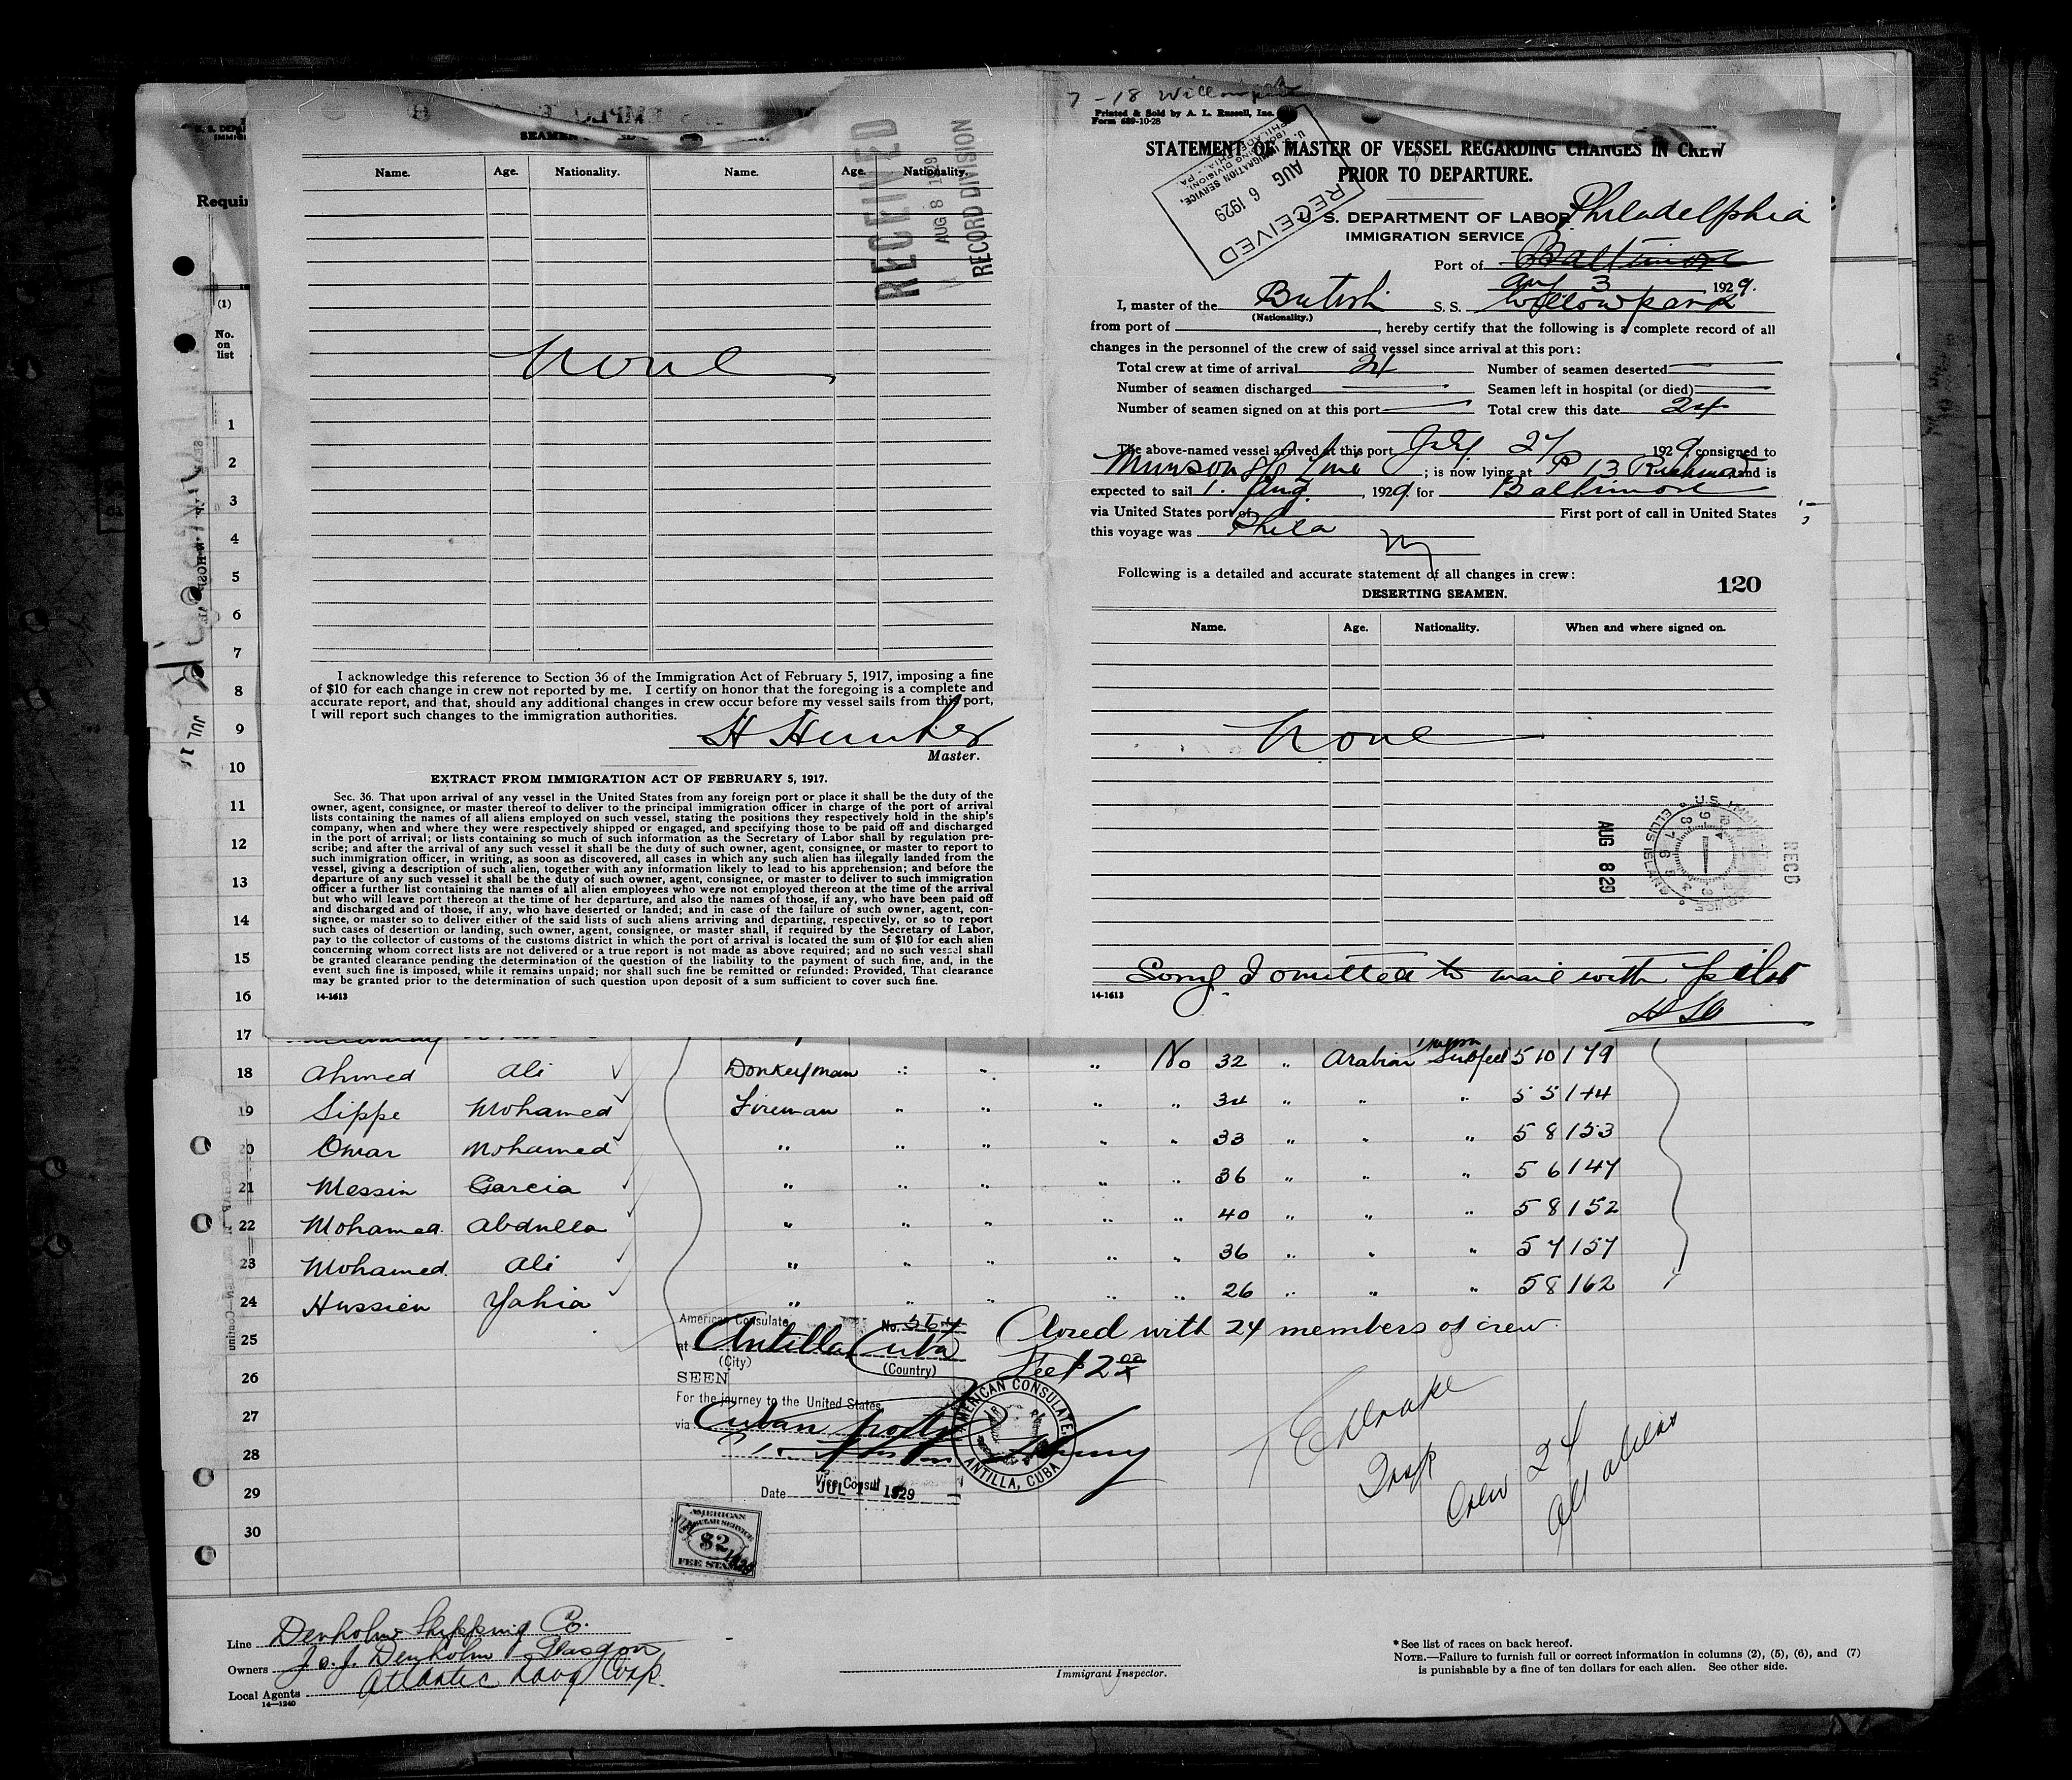 7-18 Willowpark
Printed & Sold by A. L. Russell, Inc.
Form 689-10-28
STATEMENT OF MASTER OF VESSEL REGARDING CHANGES IN CREW
PRIOR TO DEPARTURE.
RECEIVED
AUG 6 1929
U. S. IMMIGRATION SERVICE,
(BOARDING DIVISION)
PHILADELPHIA, PA.
U. S. DEPARTMENT OF LABOR Philadelphia
IMMIGRATION SERVICE
Port of Baltimore
Aug 3 1929.
I, master of the British S. S. Willowpark
(Nationality.)
from port of , hereby certify that the following is a complete record of all
changes in the personnel of the crew of said vessel since arrival at this port:
Total crew at time of arrival 24 Number of seamen deserted
Number of seamen discharged Seamen left in hospital (or died)
Number of seamen signed on at this port Total crew this date 24
The above-named vessel arrived at this port July 27 1929 consigned to
Munson SS Line ; is now lying at P 13 Richmond and is
expected to sail 1. Aug. , 1929 for Baltimore
via United States port of First port of call in United States
this voyage was Phila
Following is a detailed and accurate statement of all changes in crew:
120
DESERTING SEAMEN.
Name. Age. Nationality. When and where signed on.
None
AUG 8 29
RECD
Sorry I omitted to mail with
14-1613
Name. Age. Nationality. Name. Age. Nationality.
RECEIVED
AUG 8 1929
RECORD DIVISION
None
I acknowledge this reference to Section 36 of the Immigration Act of February 5, 1917, imposing a fine
of $10 for each change in crew not reported by me. I certify on honor that the foregoing is a complete and
accurate report, and that, should any additional changes in crew occur before my vessel sails from this port,
I will report such changes to the immigration authorities.
H Hunter
Master.
EXTRACT FROM IMMIGRATION ACT OF FEBRUARY 5, 1917.
Sec. 36. That upon arrival of any vessel in the United States from any foreign port or place it shall be the duty of the
owner, agent, consignee, or master thereof to deliver to the principal immigration officer in charge of the port of arrival
lists containing the names of all aliens employed on such vessel, stating the positions they respectively hold in the ship's
company, when and where they were respectively shipped or engaged, and specifying those to be paid off and discharged
in the port of arrival; or lists containing so much of such information as the Secretary of Labor shall by regulation pre-
scribe; and after the arrival of any such vessel it shall be the duty of such owner, agent, consignee, or master to report to
such immigration officer, in writing, as soon as discovered, all cases in which any such alien has illegally landed from the
vessel, giving a description of such alien, together with any information likely to lead to his apprehension; and before the
departure of any such vessel it shall be the duty of such owner, agent, consignee, or master to deliver to such immigration
officer a further list containing the names of all alien employees who were not employed thereon at the time of the arrival
but who will leave port thereon at the time of her departure, and also the names of those, if any, who have been paid off
and discharged and of those, if any, who have deserted or landed; and in case of the failure of such owner, agent, con-
signee, or master so to deliver either of the said lists of such aliens arriving and departing, respectively, or so to report
such cases of desertion or landing, such owner, agent, consignee, or master shall, if required by the Secretary of Labor,
pay to the collector of customs of the customs district in which the port of arrival is located the sum of $10 for each alien
concerning whom correct lists are not delivered or a true report is not made as above required; and no such vessel shall
be granted clearance pending the determination of the question of the liability to the payment of such fine, and, in the
event such fine is imposed, while it remains unpaid; nor shall such fine be remitted or refunded: Provided, That clearance
may be granted prior to the determination of such question upon deposit of a sum sufficient to cover such fine.
14-1613
Requir
(1)
No.
on
list
1
2
3
4
5
6
7
8
9
10
11
12
13
14
15
16
17
18 Ahmed Ali Donkeyman " " " No 32 " Arabian Subject 5 10 179
19 Sippe Mohamed Fireman " " " " 34 " " " 5 5 144
20 Omar Mohamed " " " " " 33 " " " 5 8 153
21 Messin Garcia " " " " " 36 " " " 5 6 147
22 Mohamed Abdulla " " " " " 40 " " " 5 8 152
23 Mohamed Ali " " " " " 36 " " " 5 7 157
24 Hussien Yahia " " " " " 26 " " " 5 8 162
25
26
27
28
29
30
American Consulate No. 564
at Antilla Cuba
(City) (Country)
SEEN
For the journey to the United States
via Cuban ports
Vice Consul
Date JUL 1 1929
AMERICAN CONSULATE
ANTILLA, CUBA
Closed with 24 members of crew.
Fee $2.00
AMERICAN
CONSULAR SERVICE
$2
FEE STAMP
Insp
Crew 24
all aliens
Line Denholm Shipping Co.
Owners J. & J. Denholm Glasgow
Local Agents Atlantic Navg Corp.
14-1240
Immigrant Inspector.
* See list of races on back hereof.
NOTE.—Failure to furnish full or correct information in columns (2), (5), (6), and (7)
is punishable by a fine of ten dollars for each alien. See other side.